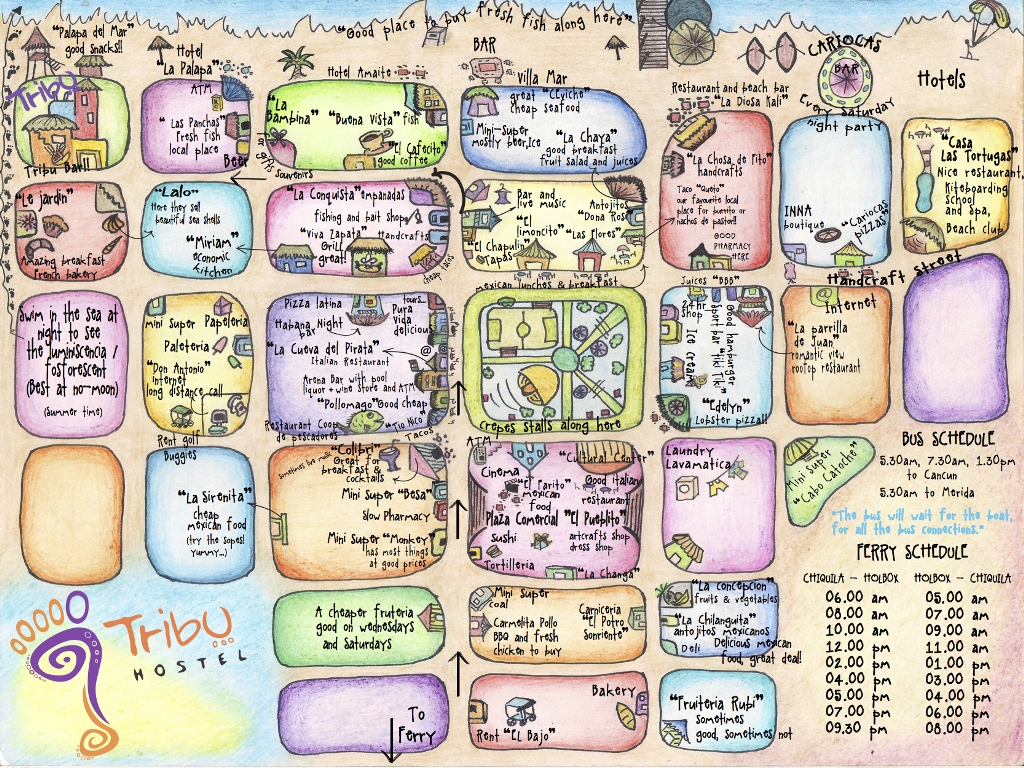 "Good place to buy fresh fish along here"
"Palapa del Mar"
good snacks!!
Tribu
Tribu Bar!!
Hotel
"La Palapa"
ATM
"Las Panchas"
Fresh fish
local place
Beer
Hotel Amaite
"La
Bambina"
"Buena Vista" fish
"El Cafecito"
good coffee
souvenirs
BAR
Villa Mar
great
cheap seafood
Mini-super
mostly beer, Ice
"La Chaya"
good breakfast
fruit salad and juices
Restaurant and beach bar
"La Diosa Kali"
"La Chosa de Pito"
handcrafts
Taco "Queto"
our favourite local
place for burrito or
nachos de pastor!!
GOOD
PHARMACY
HERE
CARIOCAS
BAR
Every Saturday
night party
INNA
boutique
"Cariocas
pizzas"
Hotels
"Casa
Las Tortugas"
Nice restaurant,
Kiteboarding
school
and Spa,
Beach club
"Le jardin"
Amazing breakfast
French bakery
"Lalo"
Here they sell
beautiful sea shells
"Miriam"
economic
kitchen
"La Conquista" empanadas
fishing and bait shop
"Viva Zapata"
Grill
great!
Handcrafts
Bar and
live music
"El
limoncito"
"El Chapulin"
Tapas
Antojitos
"Dona Rosi"
"Las Flores"
mexican lunches & breakfast
Handcraft Street
Swim in the sea at
night to see
the luminiscencia /
fosforescent
(Best at no-moon)
(summer time)
mini super
Papeleria
Paleteria
"Don Antonio"
Internet
long distance call
Rent golf
Buggies
Pizza latina
Habana Night
bar
tours...
Pura
Vida
delicious
"La Cueva del Pirata"
Italian Restaurant
@
Arena Bar with pool
liquor + wine store and ATM
"Pollomago" Good cheap
Restaurant Coop
de pescadores
"Tio Kico"
Tacos
Crepes stalls along here
Juices "BBB"
24 hr
shop
Ice cream
Good hamburger
sport bar "Tiki Tiki"
"Edelyn"
Lobster pizza!!
Internet
@
"La parrilla
de Juan"
romantic view
rooftop restaurant
"La Sirenita"
cheap
mexican food
(try the sopes!
yummy...)
"Colibri"
Great for
breakfast &
cocktails
Mini super "Besa"
Slow Pharmacy
Mini super "Monkey"
has most things
at good prices
ATM
Cinema
"Cultural Center"
"El Parito"
mexican
food
Good italian
restaurant
Plaza Comercial "El Pueblito"
sushi
artcrafts shop
dress shop
Tortilleria
"La Changa"
Laundry
Lavamatica
Mini Super
"Cabo Catoche"
BUS SCHEDULE
5.30am, 7.30am, 1.30pm
to Cancun
5.30am to Merida
*The bus will wait for the boat,
for all the bus connections.*
FERRY SCHEDULE
CHIQUILA - HOLBOX HOLBOX - CHIQUILA
06.00 am 05.00 am
08.00 am 07.00 am
10.00 am 09.00 am
12.00 pm 11.00 am
02.00 pm 01.00 pm
04.00 pm 03.00 pm
05.00 pm 04.00 pm
07.00 pm 06.00 pm
09.30 pm 08.00 pm
Tribu
HOSTEL
A cheaper fruteria
good on wednesdays
and Saturdays
Mini super
coal
Carmelita Pollo
BBQ and fresh
chicken to buy
Carniceria
"El Potro
Sonriente"
"La concepcion"
fruits & vegetables
"La Chilanguita"
antojitos mexicanos
Deli
Delicious mexican
food, great deal!
To
Ferry
Rent "EL Bajo"
Bakery
"Fruiteria Rubi"
sometimes
good, sometimes not